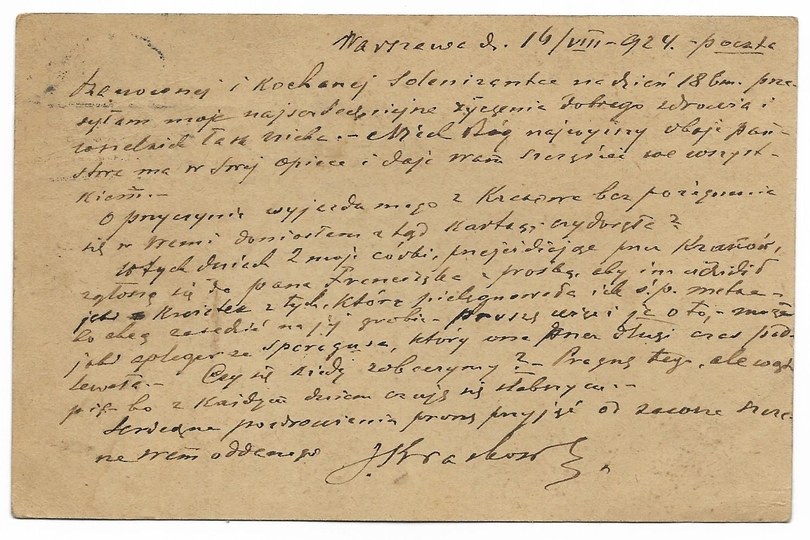 Warszawa d. 16/VIII - 924. - poczta
Szanownej i Kochanej Solenizantce na dzień 18 bm. prze-
syłam moje najserdeczniejsze życzenia dobrego zdrowia i
Niech Bóg najwyższy oboje Pań-
stwa ma w swej opiece i daje Wam szczęście we wszyst-
kiem. -
O przyczynie wyjazdu mego z Krakowa bez pożegnania
się z Wami doniosłem z tąd kartką, czy doszła?
W tych dniach 2 moje córki, przejeżdżając przez Kraków,
zgłoszą się do pana Franciszka z prośbą, aby im udzielił
z tych, które pielęgnowała ich ś.p. matka -
bo chcą zasadzić na jej grobie - proszę więc i ja o to, - może
jaki ze sparagusa, który ona przez długi czas
- Czy się kiedy zobaczymy? - Pragnę tego, ale wąt-
pię - bo z każdym dniem czuję się słabszym. -
Serdeczne pozdrowienia proszę przyjąć od zawsze szcze-
rze Wam oddanego